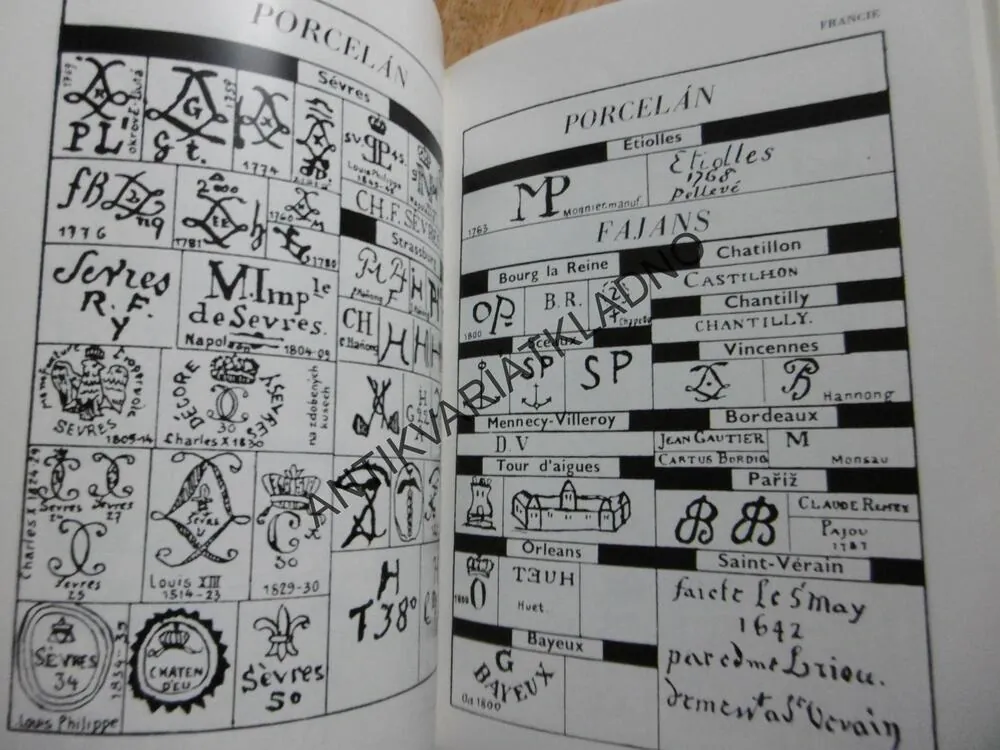 PORCELÁN
Sévres
1769
PL
okrově-žlutá
1759
G
Gt.
1774
Louis Philippe
1845-48
CH.F. SÉVRES
fB
ng
1776
2000
EE
h
1781
1760
M
1780
Strassburg
Sevres
R.F.
y
M.Imp le
de Sevres.
Napoleon 1804-09
CH
H
c.Hanong
H
Manufacture Imperiale
SEVRES
1805-14
DÉCORÉ
SEVRES
Charles X 1830
na zdobených
kusech
Charles X 1824-29
Sevres
24
Sevres
27
Sevres
25
Sevres
Louis XIII
1514-23
30
1829-30
H
T38°
SÈVRES
34
1834-35
Louis Philippe
CHATEAU
D'EU
Sèvres
50
FRANCIE
PORCELÁN
Étiolles
MP
1763
Monnier.manuf.
Etiolles
1768
Pellevé
FAJANS
Bourg la Reine
OP
1800
B.R.
Chapelle
Sceaux
SP
SP
Mennecy-Villeroy
D.V
Tour d'aigues
Orleans
1800
O
HUET
Huet.
Bayeux
G
BAYEUX
Od 1800
Chatillon
CASTILHON
Chantilly
CHANTILLY.
Vincennes
Hannong
Bordeaux
JEAN GAUTIER
CARTUS BORDIG
M
Monsau
Paříž
CLAUDE REMEY
PAJOU
1787
Saint-Vérain
faicte le 5 May
1642
par edme Briou.
ANTIKVARIÁTKLADNO